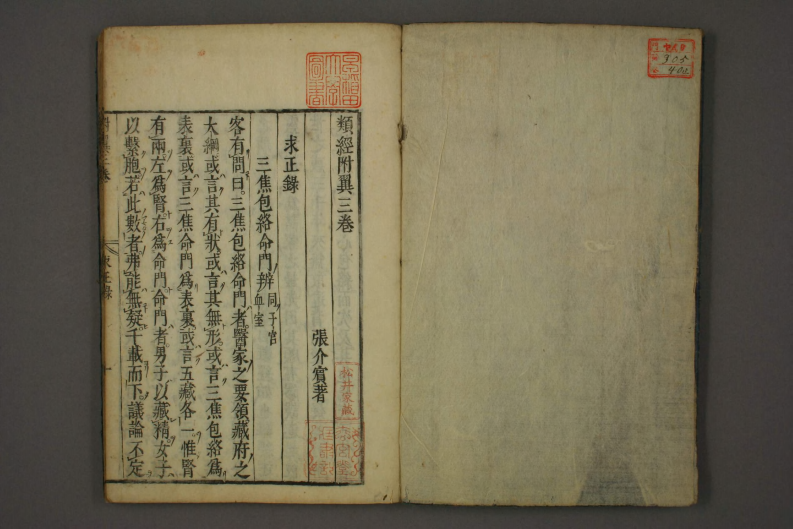 類經附翼三卷
張介賓著
求正錄
三焦包絡命門辨 同子宮血室
客有問曰三焦包絡命門者醫家之要領藏府之
大綱或言其有狀或言其無形或言三焦包絡爲
表裏或言三焦命門爲表裏或言五藏各一惟腎
有兩左爲腎右爲命門命門者男子以藏精女子
以繫胞若此數者弗能無疑千載而下議論不定
求正錄
305
402